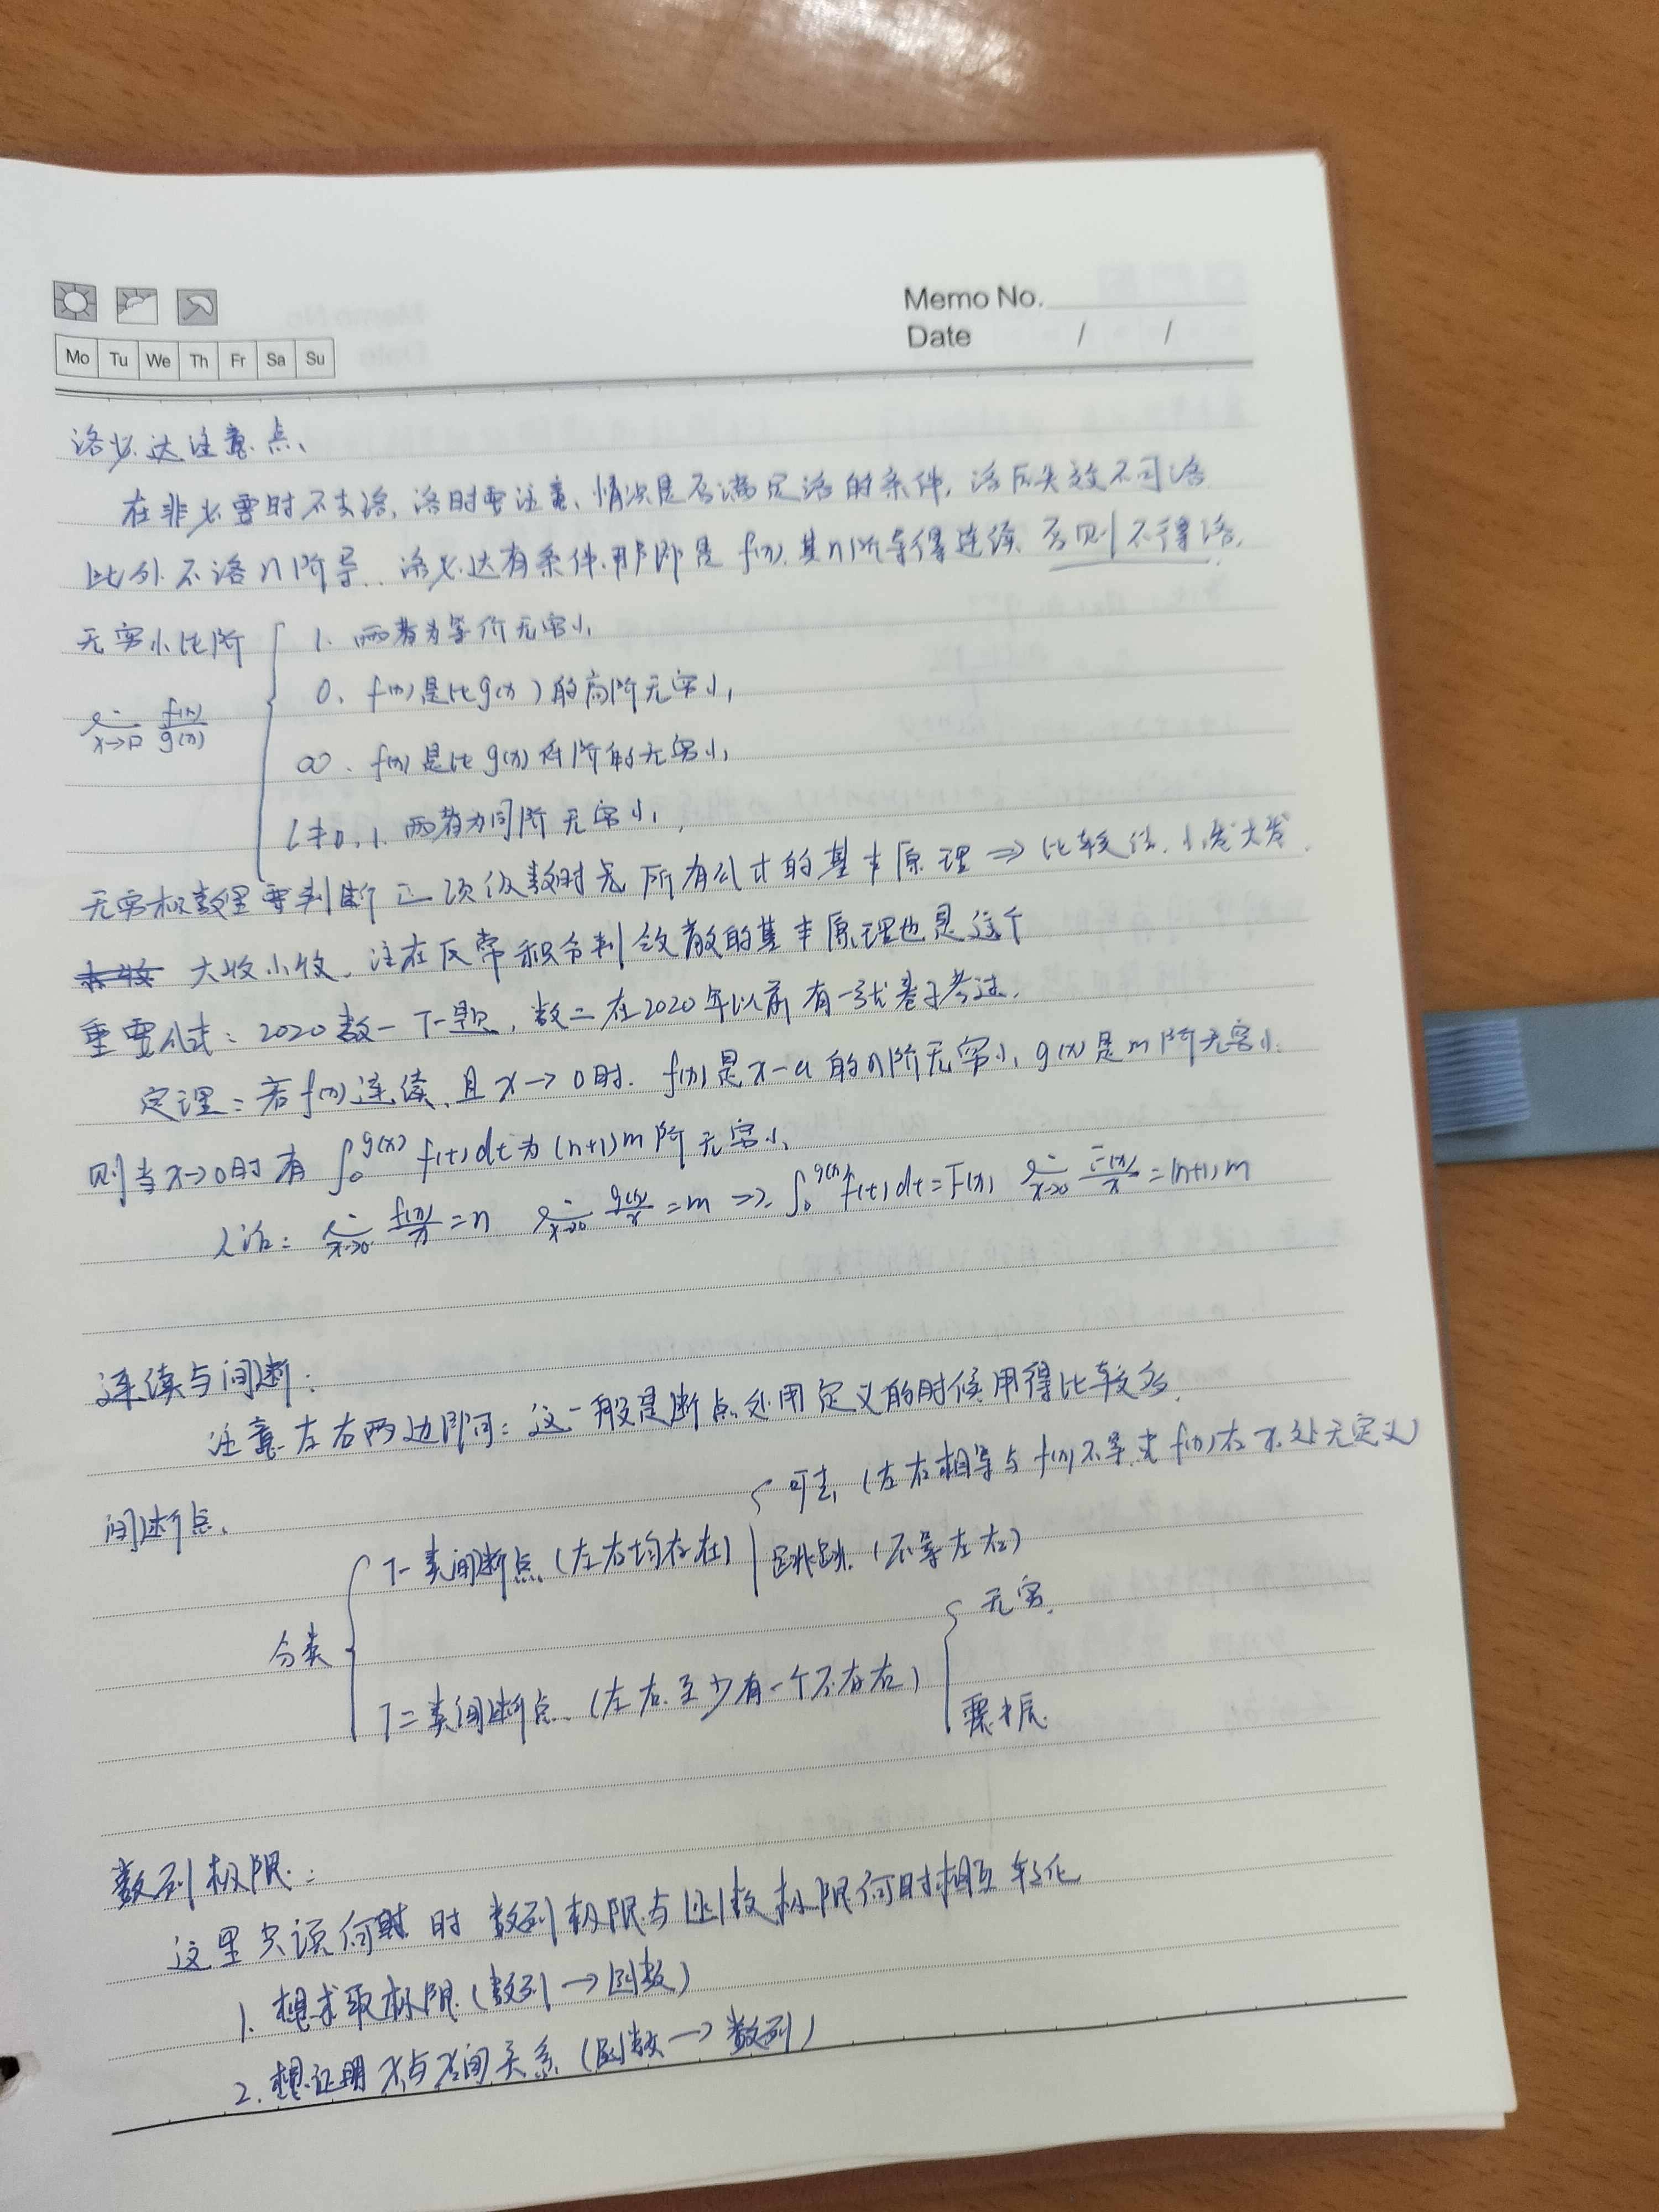 Memo No.
Date / /
Mo Tu We Th Fr Sa Su
洛必达注意点、
在非必要时不去洛,洛时要注意、情况是否满足洛的条件,洛后失效不可洛
此外不洛n阶导..洛必达有条件.那即是 f(x).其n阶导得连续.否则不得洛.
无穷小比阶
1. 两者为等价无穷小
0. f(x)是比g(x)的高阶无穷小
lim x→□ f(x)/g(x)
∞. f(x)是比g(x)低阶的无穷小
C≠0,1. 两者为同阶无穷小
无穷级数里要判断正项级数时候 所有公式的基本原理⇒比较法.小发大发.
大收小收.注在反常积分判敛散的基本原理也是这个
重要公式:2020数一 T一题,数二在2020年以前有一张卷子考过.
定理:若f(x)连续,且x→0时.f(x)是x-a的n阶无穷小,g(x)是m阶无穷小.
则当x→0时有 ∫₀^g(x) f(t)dt为(n+1)m阶无穷小
人话: lim x→0 f(x)/x=n lim x→0 g(x)/x=m ⇒ ∫₀^g(x) f(t)dt=F(x) lim x→0 F(x)/x=(n+1)m
连续与间断:
注意左右两边即可:这一般是断点处用定义的时候用得比较多.
间断点.
可去 (左右相等与f(x)不等或f(x)在x.处无定义)
T一类间断点(左右均存在)
跳跃.(不等左右)
分类
无穷.
T二类间断点.(左右至少有一个不存在)
震振.
数列极限:
这里只谈何时 时 数列极限与函数极限何时相互转化
1. 想求取极限(数列→函数)
2. 想证明x与x间关系(函数→数列)